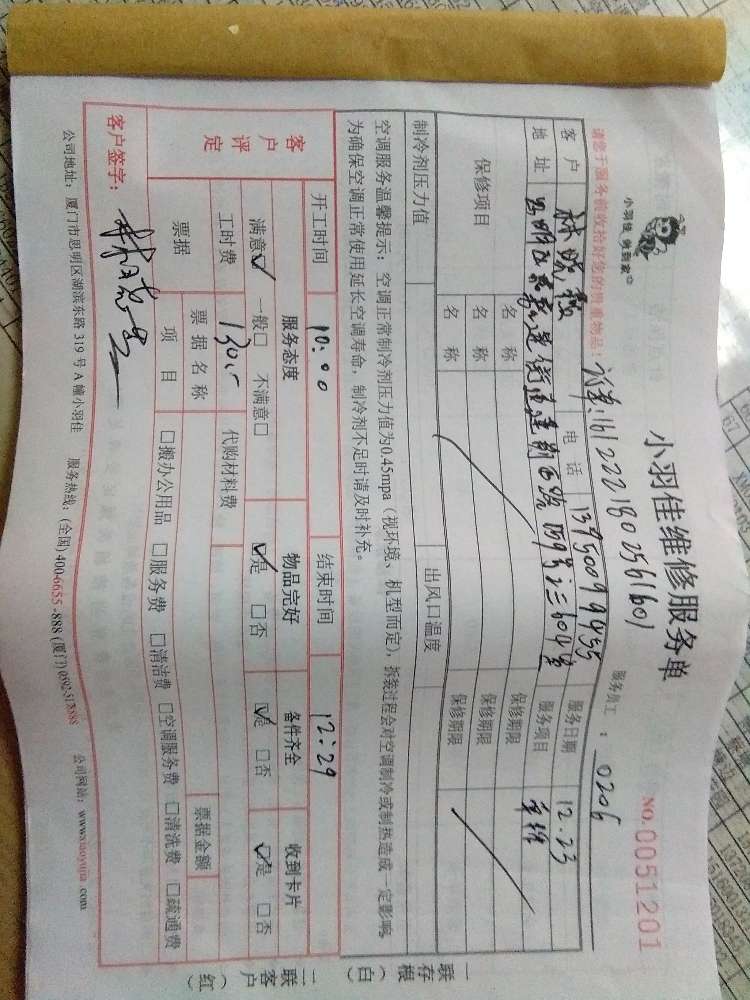 小羽佳维修服务单
小羽佳 俠到家
NO.0051201
请您于服务前收拾好您的贵重物品!
1612221802561601
服务员工: 0206
客户 林晓薇 电话 13950099455 服务日期 12.23
地址 59号 604室 服务项目
保修项目 名称 保修期限
名称 保修期限
名称 保修期限
制冷剂压力值 出风口温度
空调服务温馨提示:空调正常制冷剂压力值为0.45mpa(视环境、机型而定),拆装过程会对空调制冷或制热造成一定影响,
为确保空调正常使用延长空调寿命,制冷剂不足时请及时补充。
开工时间 10:00 结束时间 12:29
客户评定 服务态度 物品完好 备件齐全 收到卡片
满意☑ 一般□ 不满意□ ☑是 □否 ☑是 □否 ☑是 □否
工时费 130 代购材料费
票据 票据名称 票据金额
项目 □搬办公用品 □服务费 □清洁费 □空调服务费 □清洗费 □疏通费
客户签字:
公司地址:厦门市思明区湖滨东路319号A幢小羽佳 服务热线:(全国)400-6655-888(厦门)0592-5178888 公司网站:www.xiaoyujia.com
一联存根(白)
二联客户(红)